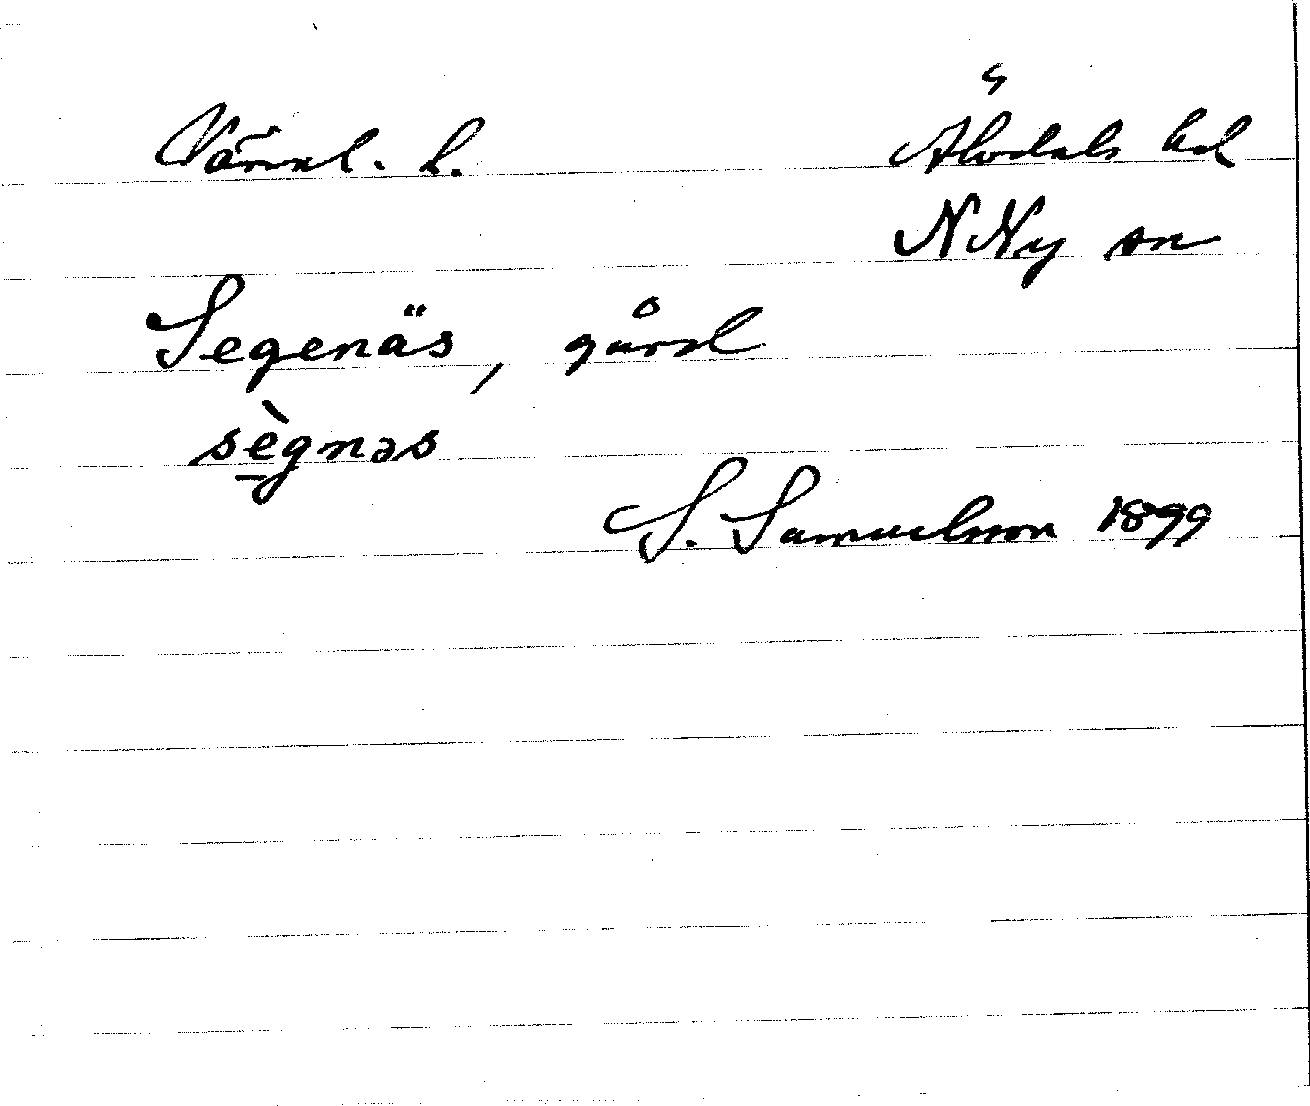 Värml. l.
Älvdals hd
N Ny sn
Segenäs, gård
sègnəs
S. Samuelsson 1899